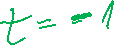 t = -1